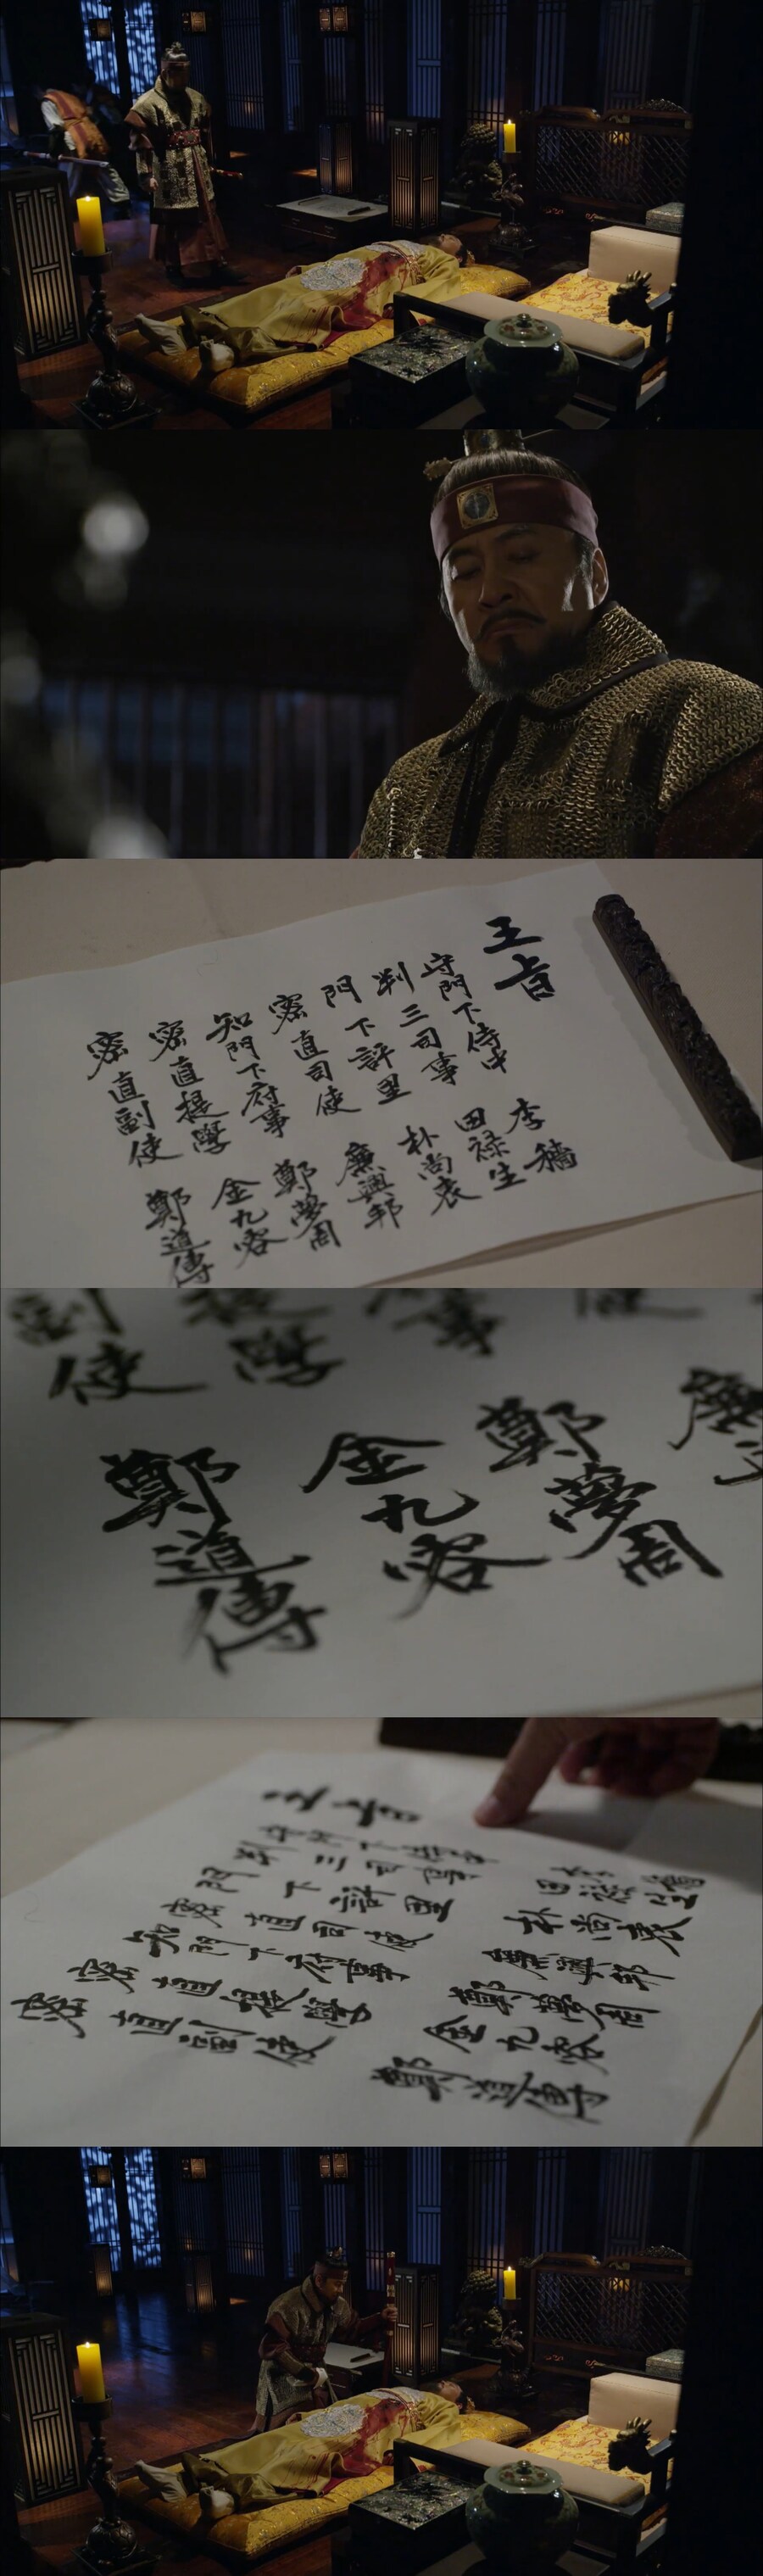 王旨
守門下侍中 李穡
判三司事 田祿生
門下評里 朴尚衷
密直司使 廉興邦
知門下府事 鄭夢周
密直提學 金九容
密直副使 鄭道傳
鄭夢周
金九容
副使 鄭道傳
王旨
守門下侍中 李穡
判三司事 田祿生
門下評里 朴尚衷
密直司使 廉興邦
知門下府事 鄭夢周
密直提學 金九容
密直副使 鄭道傳